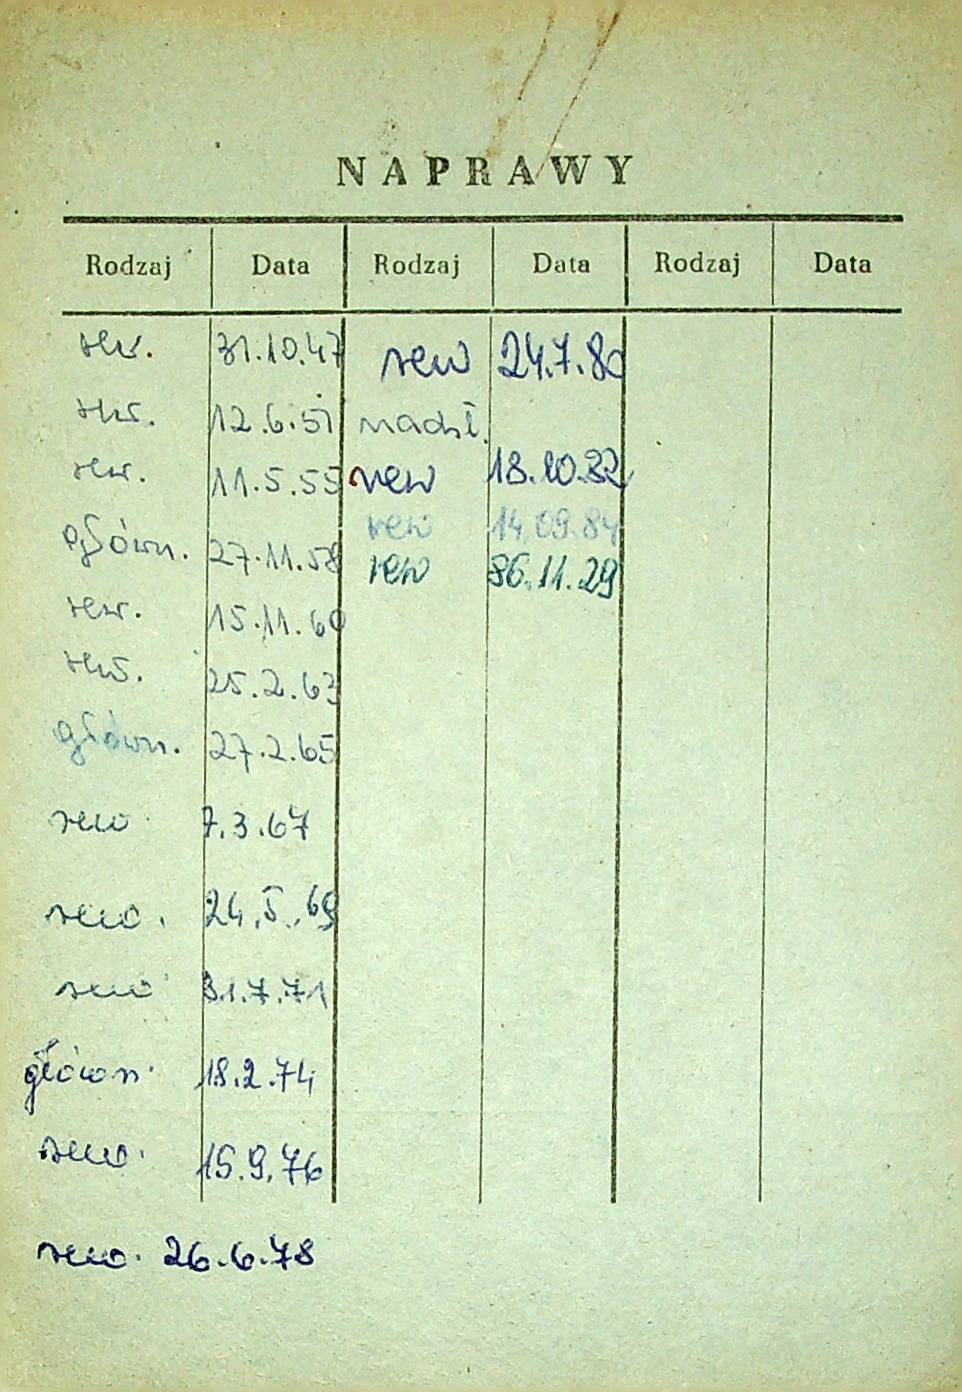 NAPRAWY
Rodzaj Data Rodzaj Data Rodzaj Data
rew. 31.10.47 rew 24.7.80
rew. 12.6.51 nadzł.
rew. 11.5.55 rew 18.10.82
główn. 27.11.58 rew 14.09.84
rew. 15.11.60 rew 86.11.29
rew. 25.2.63
główn. 27.2.65
rew. 7.3.67
rew. 24.5.69
rew. 31.7.71
główn. 18.2.74
rew. 15.9.76
rew. 26.6.78